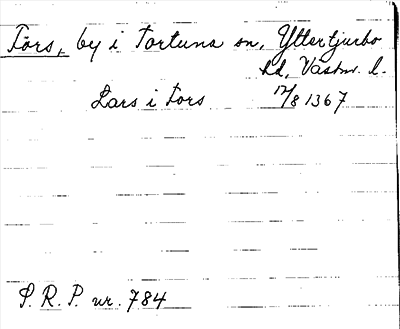 Fors, by i Tortuna sn, Yttertjurbo
hd, Västm. l.
Lars i Fors 12/8 1367
S. R. P. nr. 784